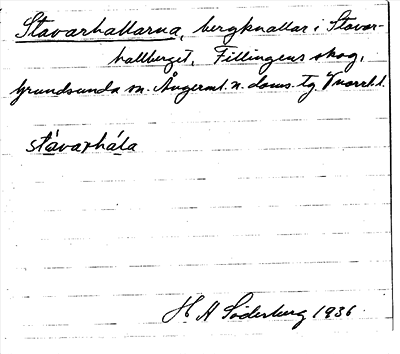 Stavarhallarna, bergknallar i Stavar-
hallberget, Fillingens skog,
Grundsunda sn. Ångerml. n. doms. tg. Vnorrl. l.
stávarhála
H A Söderberg 1936.